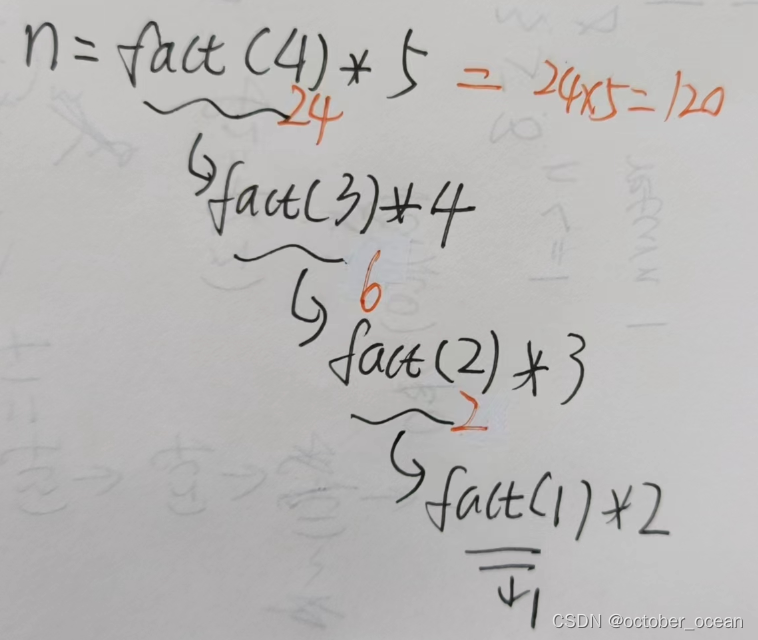 n = fact(4) * 5 = 24×5=120
24
fact(3) * 4
6
fact(2) * 3
2
fact(1) * 2
1
CSDN @october_ocean